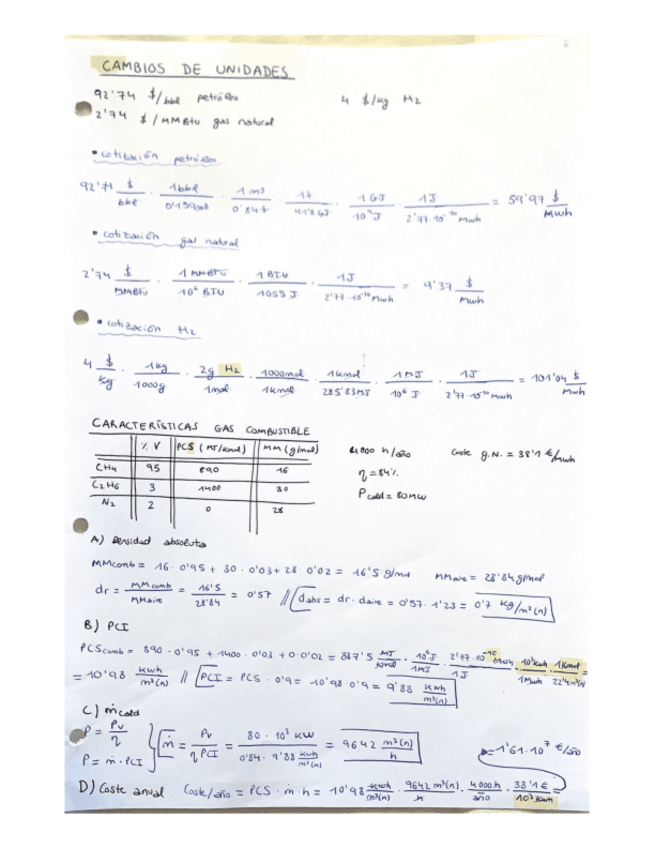 CAMBIOS DE UNIDADES
92'74 $/bbl petróleo 4 $/kg H2
2'74 $/MMBtu gas natural
• cotización petróleo
92'74 $/bbl · 1 bbl/0'159 m3 · 1 m3/0'84 t · 1 t/41'8 GJ · 1 GJ/10^9 J · 1 J/2'77·10^-10 Mwh = 59'97 $/Mwh
• cotización gas natural
2'74 $/MMBTU · 1 MMBTU/10^6 BTU · 1 BTU/1055 J · 1 J/2'77·10^-10 Mwh = 9'37 $/Mwh
• cotización H2
4 $/kg · 1 kg/1000 g · 2g H2/1 mol · 1000 mol/1 kmol · 1 kmol/285'83 MJ · 1 MJ/10^6 J · 1 J/2'77·10^-10 Mwh = 101'04 $/Mwh
CARACTERÍSTICAS GAS COMBUSTIBLE
% V PCS (MJ/kmol) MM (g/mol)
CH4 95 890 16
C2H6 3 1400 30
N2 2 0 28
4000 h/año Coste g.N. = 38'1 €/Mwh
η = 84%
P cald = 80 MW
A) Densidad absoluta
MMcomb = 16 · 0'95 + 30 · 0'03 + 28 · 0'02 = 16'5 g/mol MMaire = 28'84 g/mol
dr = MMcomb/MMaire = 16'5/28'84 = 0'57 // dabs = dr · daire = 0'57 · 1'23 = 0'7 kg/m3(n)
B) PCI
PCScomb = 890 · 0'95 + 1400 · 0'03 + 0·0'02 = 887'5 MJ/kmol · 10^6 J/1 MJ · 2'77·10^-10 Mwh/1 J · 10^3 kwh/1 Mwh · 1 Kmol/22'4 m3(n) =
= 10'98 kwh/m3(n) // PCI = PCS · 0'9 = 10'98 · 0'9 = 9'88 kwh/m3(n)
C) ṁ cald
P = Pu/η
P = ṁ · PCI
ṁ = Pu/η PCI = 80 · 10^3 KW/0'84 · 9'88 kwh/m3(n) = 9642 m3(n)/h
= 1'61 · 10^7 €/año
D) Coste anual Coste/año = PCS · ṁ · h = 10'98 kwh/m3(n) · 9642 m3(n)/h · 4000 h/año · 38'1 €/10^3 kwh =